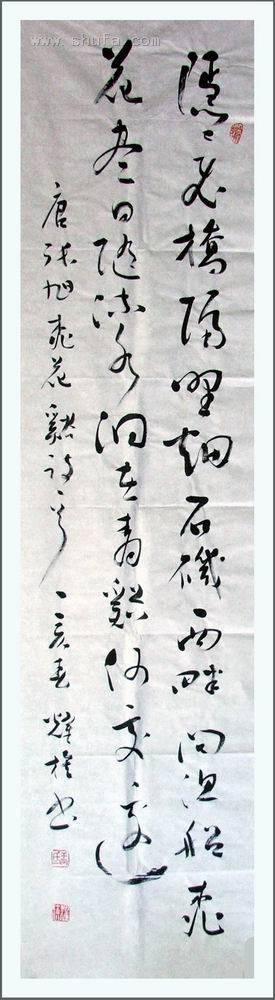 www.shufa.com
隱隱飛橋隔野烟石磯西畔問漁船桃
花盡日隨流水洞在青谿何處邊
唐張旭桃花谿詩一首 丁亥春 書